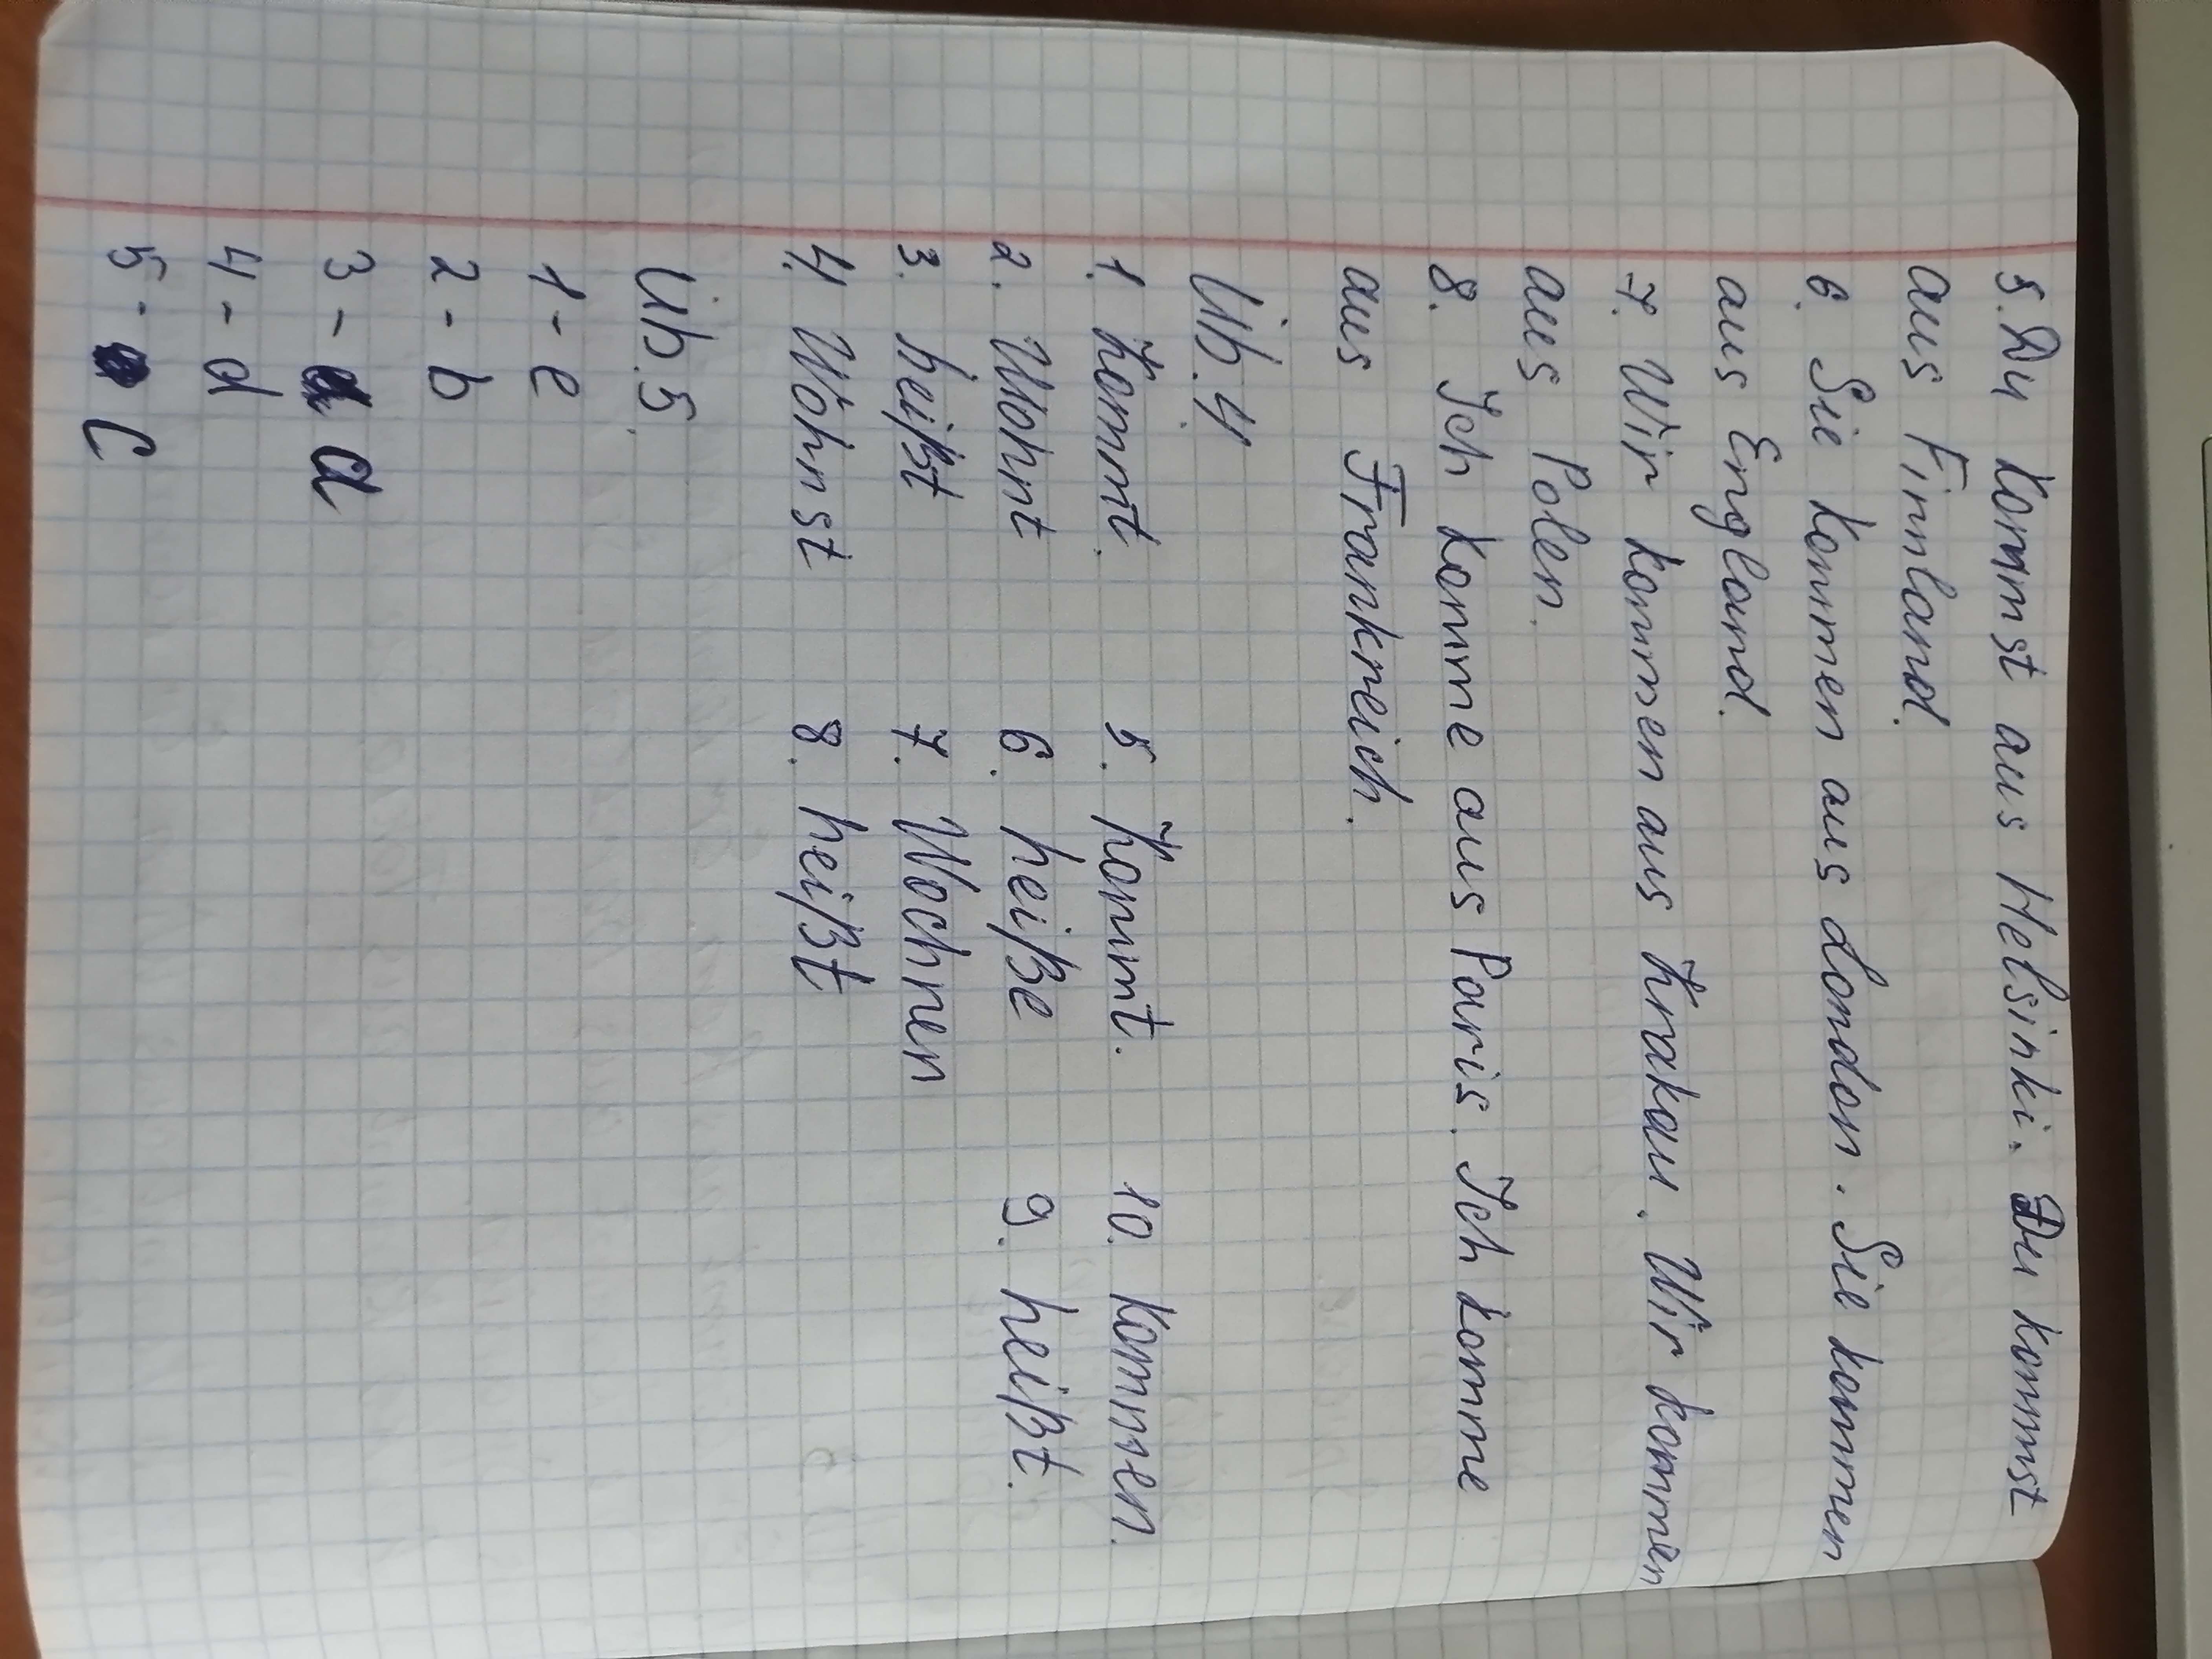 5. Du kommst aus Helsinki. Du kommst
aus Finnland.
6. Sie kommen aus London. Sie kommen
aus England.
7. Wir kommen aus Krakau. Wir kommen
aus Polen.
8. Ich komme aus Paris. Ich komme
aus Frankreich.
Üb. 4.
1. Kommt. 5. Kommt. 10. kommen.
2. Wohnt 6. heiße 9. heißt.
3. heißt 7. Wochnen
4. Wohnst 8. heißt
Üb. 5.
1 - e
2 - b
3 - a
4 - d
5 - c